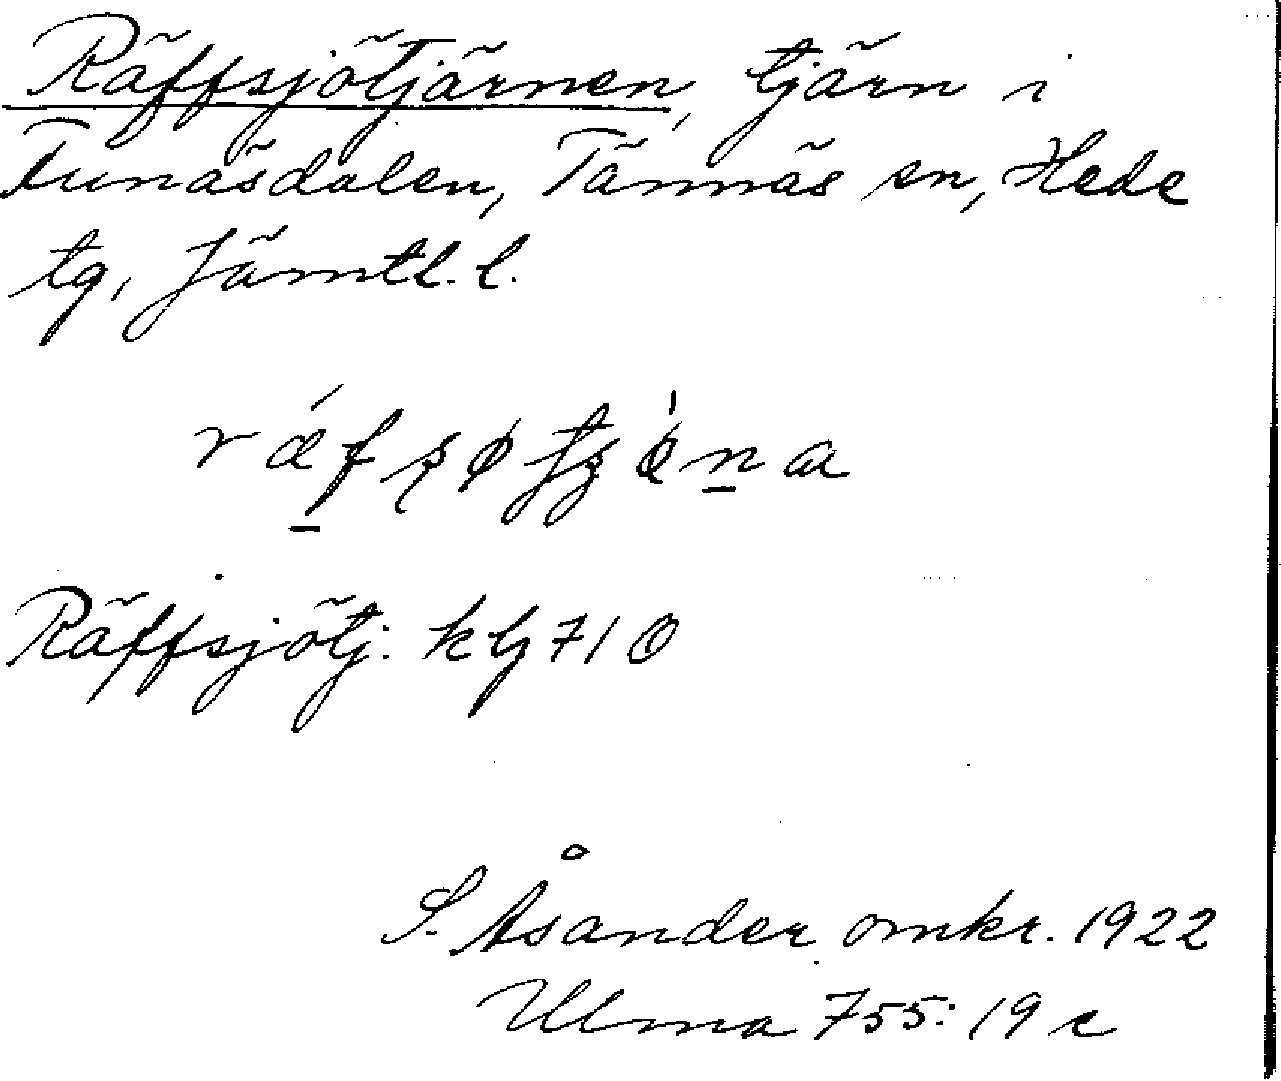 Räffsjötjärnen, tjärn i
Funäsdalen, Tännäs sn, Hede
tg, Jämtl. l.
Räffsjötj: klg 710
S. Åsander omkr. 1922
Ulma 755: 19 c